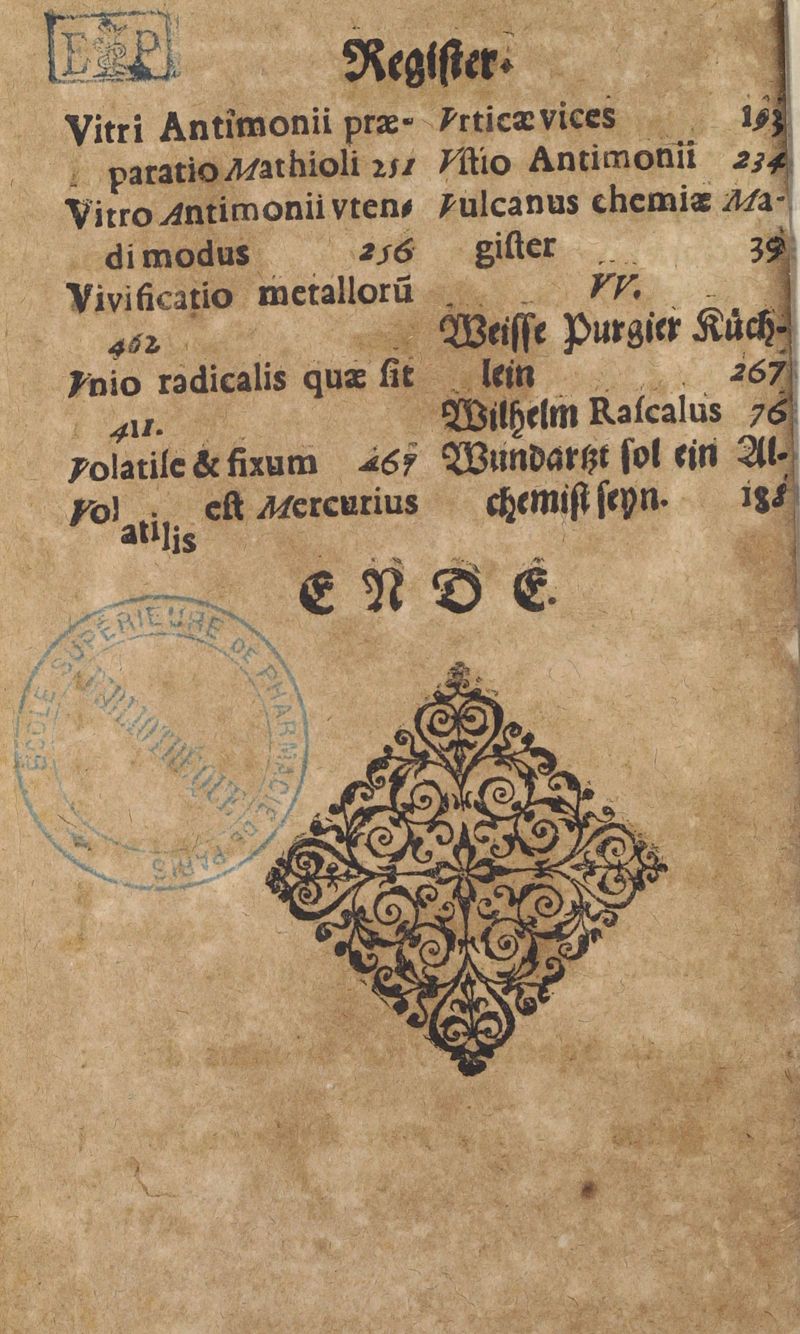 E P
Regiſter.
Vitri Antimonii præ-
paratio Mathioli 251
Vitro Antimonii vten-
di modus 256
Vivificatio metallorũ
462
Vnio radicalis quæ ſit
411.
Volatile & fixum 467
Vol atilis eſt Mercurius
Vrticæ vices
Vſtio Antimonii 234
Vulcanus chemiæ Ma-
giſter 39
VV.
Weiſſe Purgier Kuͤch-
lein 267
Wilhelm Raſcalus 76
Wundartzt ſol ein Al-
chemiſt ſeyn.
ENDE.
ECOLE SUPERIEURE DE PHARMACIE DE PARIS
BIBLIOTHÈQUE